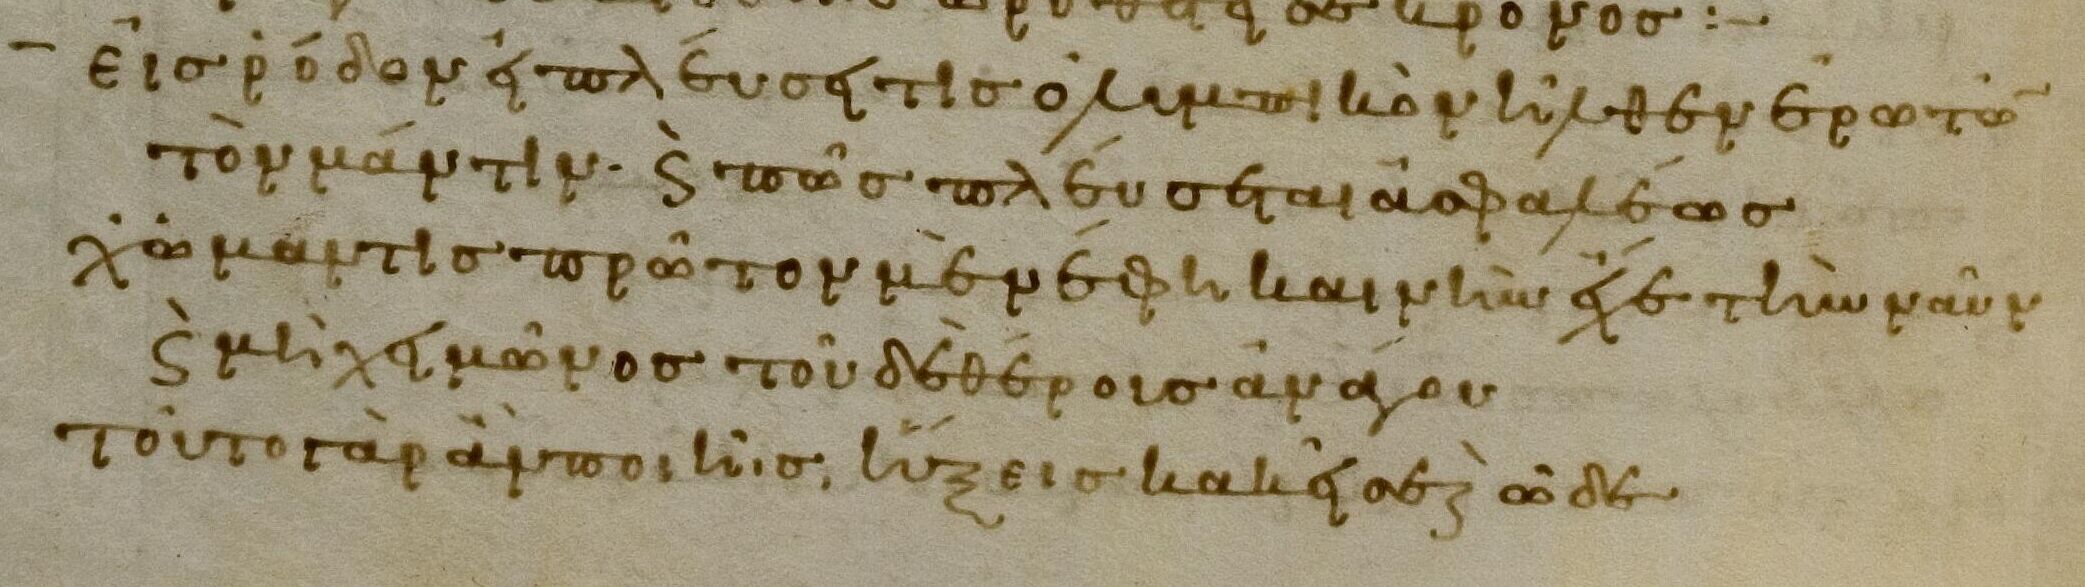 ὡροθέτησε κρόνος :~
εἰς ῥόδον εἰ πλεύσει τὶς ὀλυμπικὸν ἦλθεν ἐρωτῶν
τὸν μάντιν. ϗ πῶς πλεύσεται ἀσφαλέως
χὠ μαντις πρῶτον μὲν ἔφη καινὴν ἔχε τὴν ναῦν
ϗ μὴ χειμῶνος τοῦ δὲ θέροις ἀνάγου
τοῦτο γὰρ ἂν ποιῆις, ἥξεις κακεῖσε ϗ ὧδε